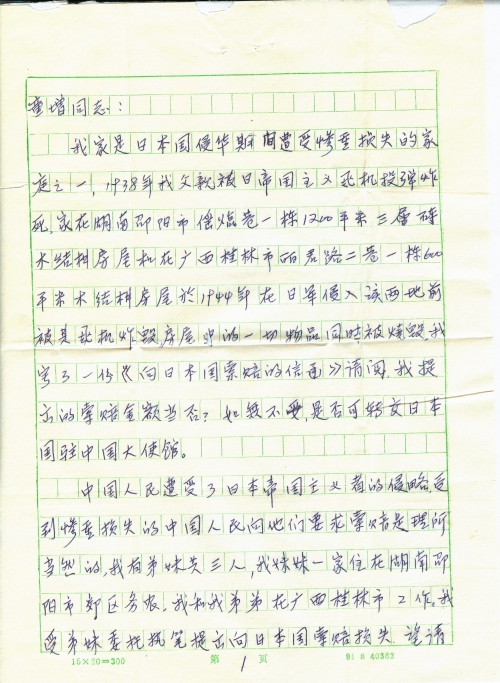 童增同志:
我家是日本国侵华期间遭受惨重损失的家
庭之一,1938年我父亲被日帝国主义飞机投弹炸
死,家在湖南邵阳市 巷一栋1200平米三层砖
木结构房屋和在广西桂林市丽君路二巷一栋600
平米木结构房屋於1944年在日军侵入该两地前
被其飞机炸毁,房屋中的一切物品同时被烧毁,我
写了一份《向日本国索赔的信函》请阅,我提
出的索赔金额当否?如 不 ,是否可转交日本
国驻中国大使馆。
中国人民遭受了日本帝国主义者的侵略,受
到惨重损失的中国人民向他们要求索赔是理所
当然的,我有弟妹共三人,我妹妹一家住在湖南邵
阳市郊区务农,我和我弟弟在广西桂林市工作,我
受弟妹委托执笔提出向日本国索赔损失,望请
15×20=300 第 1 页 91 8 40383